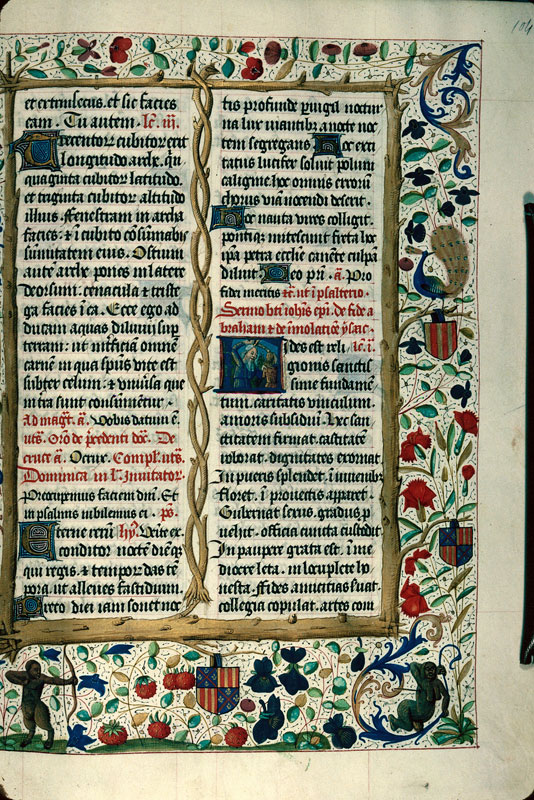 104
et extrinsecus. et sic facies
eam. Tu autem. lc. iii.
Trecentor cubitor erit
longitudo arche. qn
quaginta cubitor latitudo.
et triginta cubitor altitudo
illius. ffenestram in archa
facies: et i cubito cosumabis
sumitatem eius. Ostium
aute arche pones in latere
deorsum. cenacula et triste
ga facies i ea. Ecce ego ad
ducam aquas diluuii sup
terram: ut interficiam omnem
carne in qua spus vite est
subter celum. et vniusa que
in tra sunt consumetur.
Ad magt. a. Vobis datum e.
uts. Oro de pcedenti do. De
cruce a. Ocrux. Compl. uts.
Dominica in l. Inuitator.
Preoccupemus faciem dni. Et
in psalmis iubilemus ei. ps.
Eterne reru hy. Venite ex
conditor nocte dieq
qui regis. et tempor das te
pora ut alleues fastidium.
Preco diei iam sonet noc
tis profunde puigil noctur
na lux viantibz a nocte noc
tem segregans. Hoc exci
tatus lucifer soluit polum
caligine hoc omnis erroru
chorus via nocendi deserit.
Hoc nauta vires colligit.
pontiq mitescunt freta hoc
ipa petra ecclie canete culpa
diluit. Deo pri. a. Pro
fidei meritis etc. ut i psalterio.
Sermo bti iohis epi. de fide a
braham et de imolatioe ysac.
Fides est reli lc. i.
gionis sanctis
sime fundamen
tum. caritatis vinculum
amoris subsidiu. Hec san
ctitatem firmat. castitate
roborat. dignitates exornat
In pueris splendet. i iuuenibz
floret. i prouectis apparet.
Gubernat sexus. gradus p
uehit. officia cuncta custodit.
In paupere grata est. i me
diocre leta. in locuplete ho
nesta. ffides amicitias suat
collegia copulat. artes com